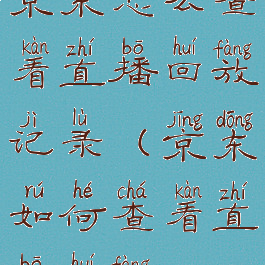 京东怎么查
kàn zhí bō huí fàng
看直播回放
jì lù jīng dōng
记录（京东
rú hé chá kàn zhí
如何查看直
bō huí fàng